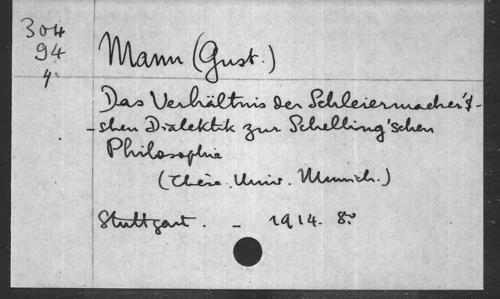 304
94
4°
Mann (Gust.)
Das Verhältnis der Schleiermacher's-
-schen Dialektik zur Schelling'schen
Philosophie
(Thèse. Univ. Munich.)
Stuttgart. - 1914. 8°